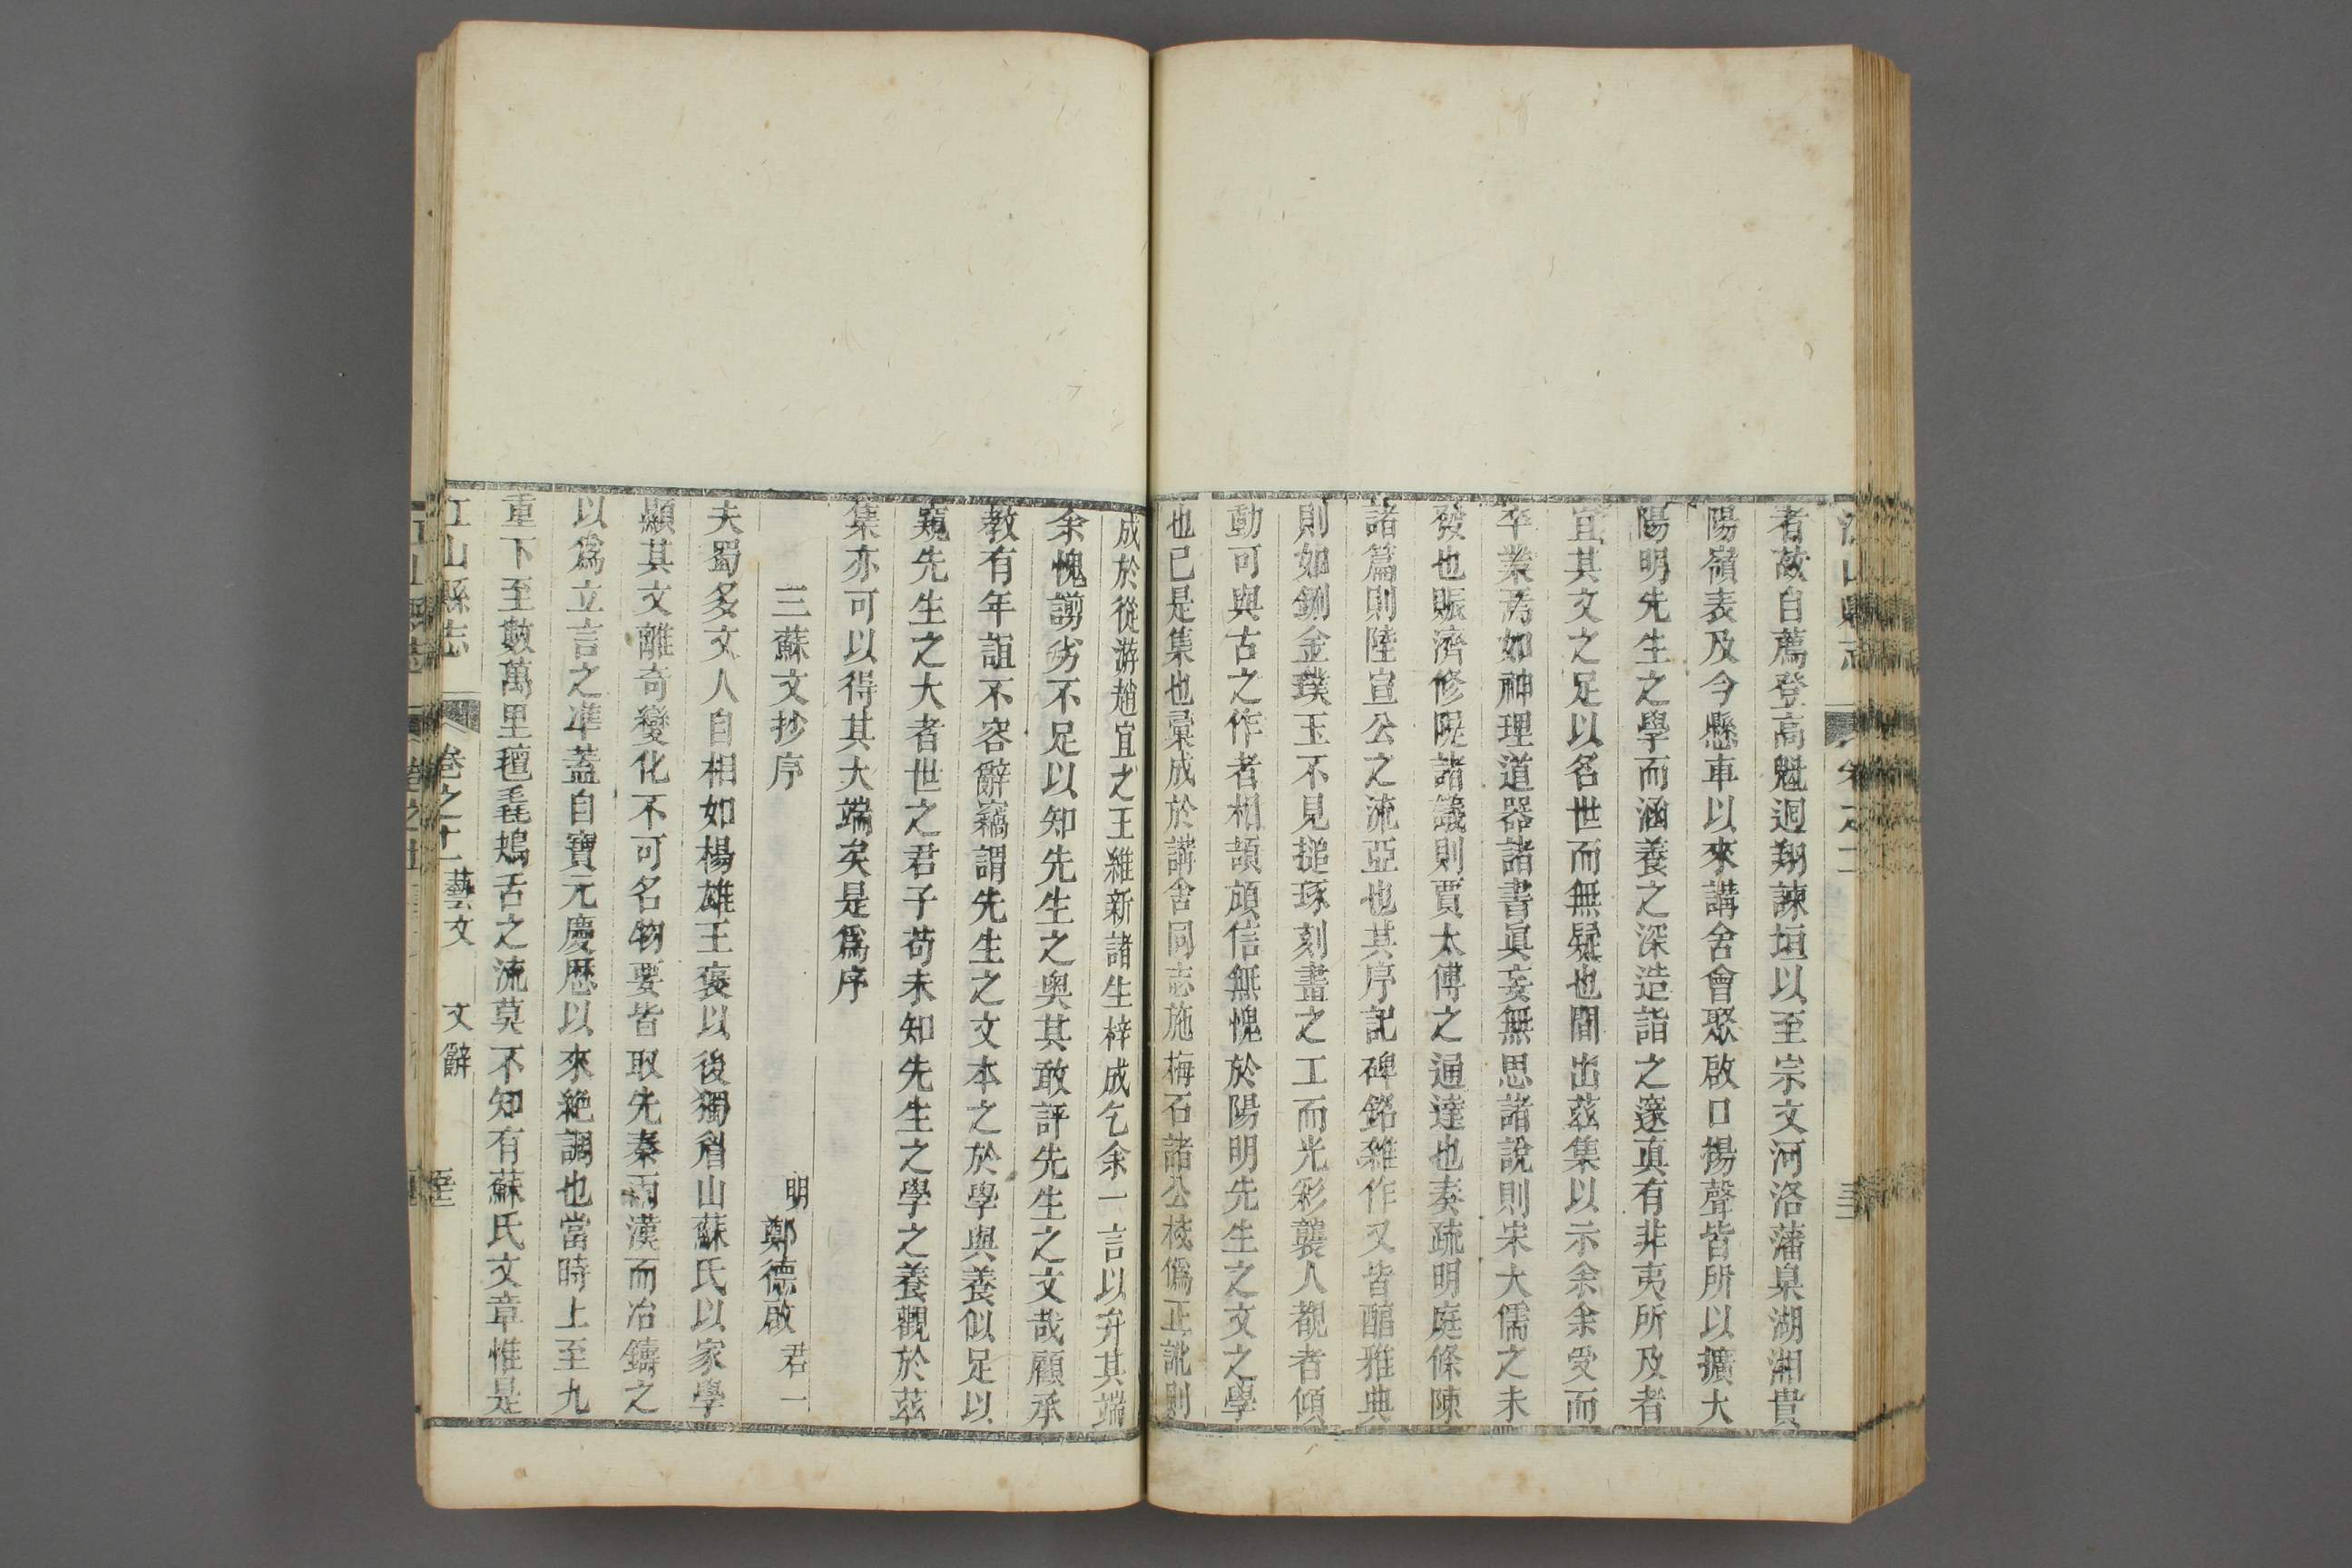 者故自薦登高魁迴翔諫垣以至宗文河洛藩臬湖湘貴
陽嶺表及今懸車以來講舍會聚啟口揚聲皆所以擴大
陽明先生之學而涵養之深造詣之邃真有非夷所及者
宜其文之足以名世而無疑也間出茲集以示余余受而
卒業焉如神理道器諸書眞妄無思諸說則宋大儒之未
發也賑濟修隄諸議則賈太傅之通達也奏疏明庭條陳
諸篇則陸宣公之流亞也其序記碑銘雜作又皆醇雅典
則如鍘金璞玉不見搥琢刻畫之工而光彩襲人觀者傾
動可與古之作者相頡頏信無愧於陽明先生之文之學
也已是集也彙成於講舍同志施梅石諸公棱僞正訛則
成於從游趙宜之王維新諸生梓成乞余一言以弁其端
余愧謭劣不足以知先生之奥其敢評先生之文哉顧承
教有年誼不容辭竊謂先生之文本之於學與養似足以
窺先生之大者世之君子苟未知先生之學之養觀於茲
集亦可以得其大端矣是爲序
三蘇文抄序
明 鄭德啟 君一
夫蜀多文人自相如楊雄王褒以後獨眉山蘇氏以家學
顯其文離奇變化不可名物要皆取先秦兩漢而冶鑄之
以爲立言之準蓋自寶元慶歷以來絶調也當時上至九
重下至數萬里氊毳鴂舌之流莫不知有蘇氏文章惟是
江山縣志 卷之十一 藝文 文辭